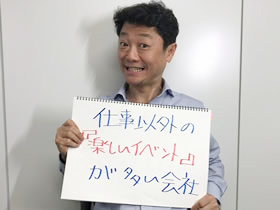 仕事以外の
『楽しいイベント』
が多い会社